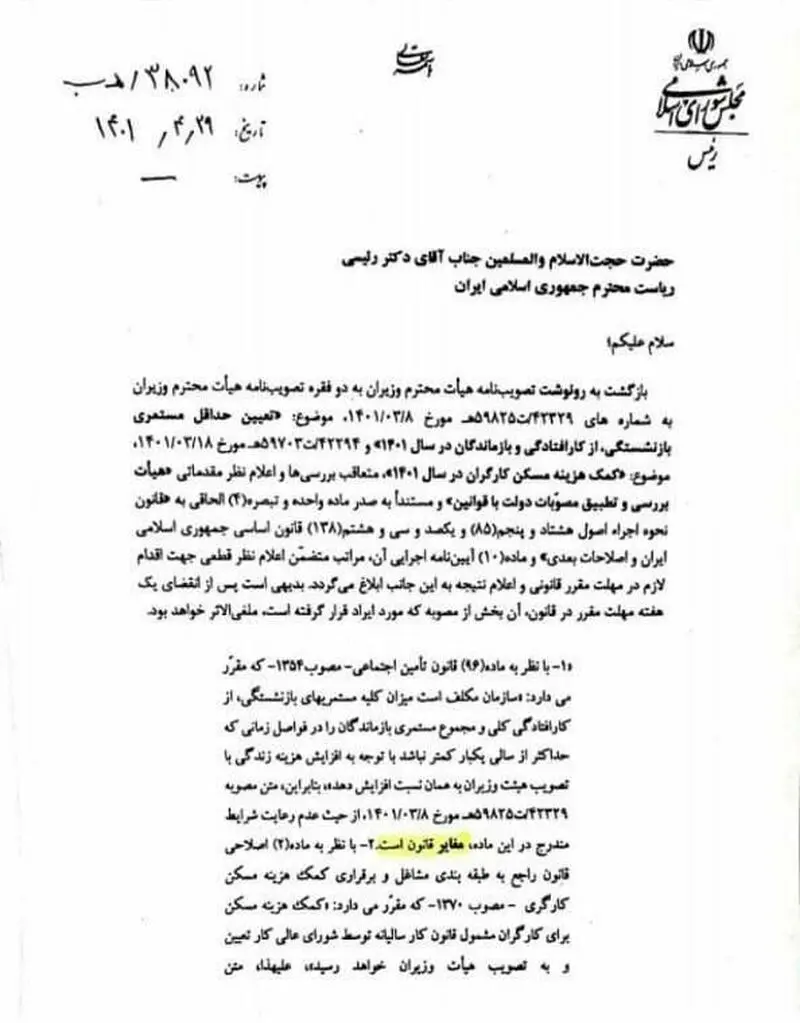 باسمه تعالی
جمهوری اسلامی ایران
مجلس شورای اسلامی
رئیس
شماره: ۳۸۰۹۲/هـ ب
تاریخ: ۱۴۰۱/۴/۲۹
پیوست: —
حضرت حجت‌الاسلام والمسلمین جناب آقای دکتر رئیسی
ریاست محترم جمهوری اسلامی ایران
سلام علیکم؛
بازگشت به رونوشت تصویب‌نامه هیأت محترم وزیران به دو فقره تصویب‌نامه هیأت محترم وزیران
به شماره های ۴۲۳۲۹/ت۵۹۸۲۵هـ مورخ ۱۴۰۱/۰۳/۸، موضوع: «تعیین حداقل مستمری
بازنشستگی، از کارافتادگی و بازماندگان در سال ۱۴۰۱» و ۴۲۲۹۴/ت۵۹۷۰۳هـ مورخ ۱۴۰۱/۰۳/۱۸،
موضوع: «کمک هزینه مسکن کارگران در سال ۱۴۰۱»، متعاقب بررسی‌ها و اعلام نظر مقدماتی «هیأت
بررسی و تطبیق مصوّبات دولت با قوانین» و مستنداً به صدر ماده واحده و تبصره(۴) الحاقی به «قانون
نحوه اجراء اصول هشتاد و پنجم(۸۵) و یکصد و سی و هشتم(۱۳۸) قانون اساسی جمهوری اسلامی
ایران و اصلاحات بعدی» و ماده(۱۰) آیین‌نامه اجرایی آن، مراتب متضمّن اعلام نظر قطعی جهت اقدام
لازم در مهلت مقرر قانونی و اعلام نتیجه به این جانب ابلاغ می‌گردد. بدیهی است پس از انقضای یک
هفته مهلت مقرر در قانون، آن بخش از مصوبه که مورد ایراد قرار گرفته است، ملغی‌الاثر خواهد بود.
«۱- با نظر به ماده(۹۶) قانون تأمین اجتماعی- مصوب۱۳۵۴- که مقرّر
می دارد: «سازمان مکلف است میزان کلیه مستمریهای بازنشستگی، از
کارافتادگی کلی و مجموع مستمری بازماندگان را در فواصل زمانی که
حداکثر از سالی یکبار کمتر نباشد با توجه به افزایش هزینه زندگی با
تصویب هیئت وزیران به همان نسبت افزایش دهد»، بنابراین، متن مصوبه
۴۲۳۲۹/ت۵۹۸۲۵هـ مورخ ۱۴۰۱/۰۳/۸، از حیث عدم رعایت شرایط
مندرج در این ماده، مغایر قانون است. ۲- با نظر به ماده(۲) اصلاحی
قانون راجع به طبقه بندی مشاغل و برقراری کمک هزینه مسکن
کارگری - مصوب ۱۳۷۰- که مقرّر می دارد: «کمک هزینه مسکن
برای کارگران مشمول قانون کار سالیانه توسط شورای عالی کار تعیین
و به تصویب هیأت وزیران خواهد رسید»، علیهذا، متن